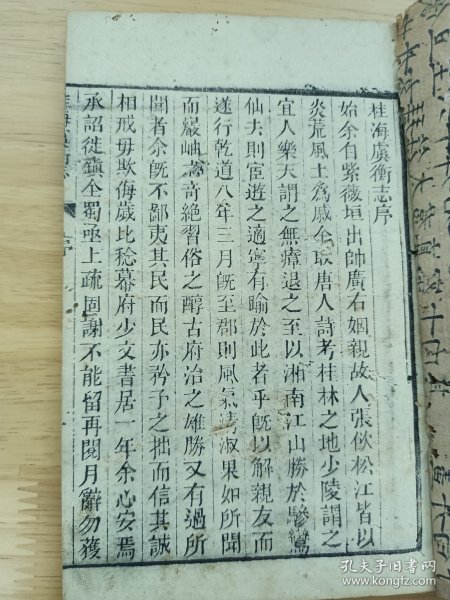 桂海虞衡志序
始余自紫薇垣出帥廣右姻親故人張飲松江皆以
炎荒風土爲戚余取唐人詩考桂林之地少陵謂之
宜人樂天謂之無瘴退之至以湘南江山勝於驂鸞
仙去則宦遊之適寧有踰於此者乎旣以解親友而
遂行乾道八年三月旣至郡則風氣清淑果如所聞
而巖岫之奇絕習俗之醇古府治之雄勝又有過所
聞者余旣不鄙夷其民而民亦矜予之拙而信其誠
相戒毋欺侮歲比稔幕府少文書居一年余心安焉
承詔徙鎮全蜀亟上疏固謝不能留再閱月辭勿獲
序
孔夫子旧书网
www.kongfz.com